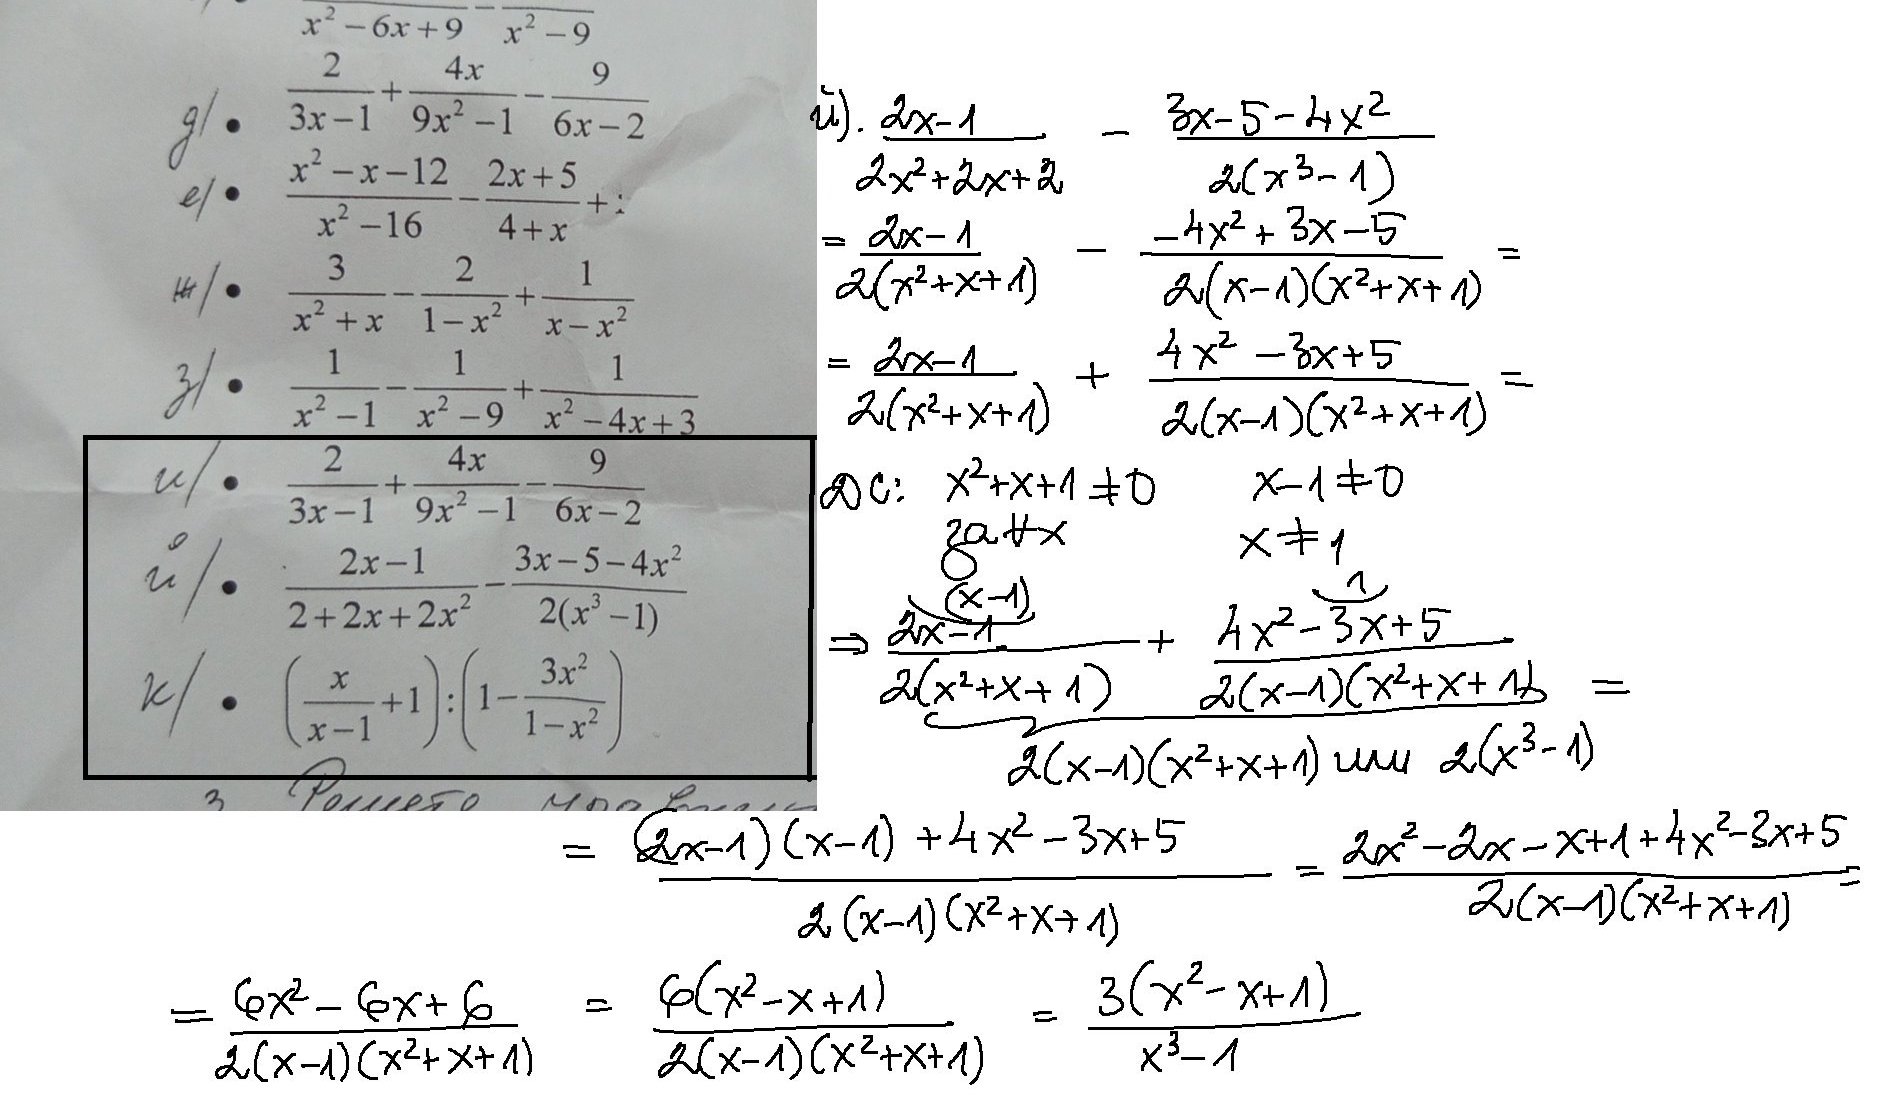 x² − 6x + 9 − x² − 9
д/ • 2/(3x−1) + 4x/(9x²−1) − 9/(6x−2)
е/ • (x²−x−12)/(x²−16) − (2x+5)/(4+x) + :
ж/ • 3/(x²+x) − 2/(1−x²) + 1/(x−x²)
з/ • 1/(x²−1) − 1/(x²−9) + 1/(x²−4x+3)
и/ • 2/(3x−1) + 4x/(9x²−1) − 9/(6x−2)
й/ • (2x−1)/(2+2x+2x²) − (3x−5−4x²)/(2(x³−1))
к/ • (x/(x−1) + 1) : (1 − 3x²/(1−x²))
3. Решете
й). (2x−1)/(2x²+2x+2) − (3x−5−4x²)/(2(x³−1))
= (2x−1)/(2(x²+x+1)) − (−4x²+3x−5)/(2(x−1)(x²+x+1)) =
= (2x−1)/(2(x²+x+1)) + (4x²−3x+5)/(2(x−1)(x²+x+1)) =
ДС: x²+x+1≠0 x−1≠0
за ∀x x≠1
(x−1) 1
⇒ (2x−1)/(2(x²+x+1)) + (4x²−3x+5)/(2(x−1)(x²+x+1)) =
2(x−1)(x²+x+1) или 2(x³−1)
= ((2x−1)(x−1)+4x²−3x+5)/(2(x−1)(x²+x+1)) = (2x²−2x−x+1+4x²−3x+5)/(2(x−1)(x²+x+1)) =
= (6x²−6x+6)/(2(x−1)(x²+x+1)) = 6(x²−x+1)/(2(x−1)(x²+x+1)) = 3(x²−x+1)/(x³−1)